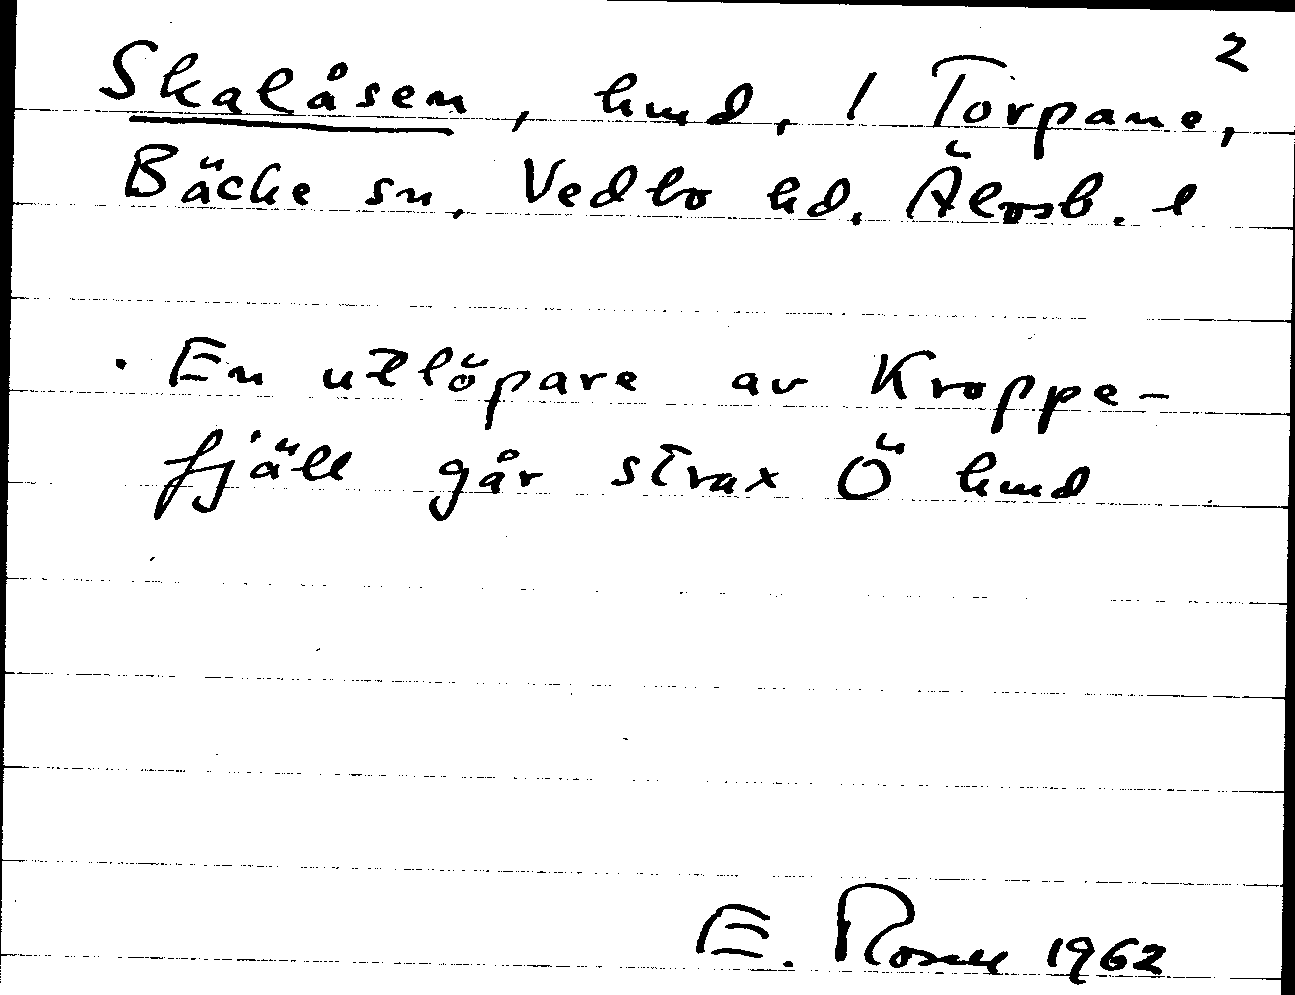 2
Skalåsen, hmd, 1 Torpane,
Bäcke sn. Vedbo hd. Älvsb. l
. En utlöpare av Kroppe-
fjäll går strax Ö hmd
E. Rosell 1962